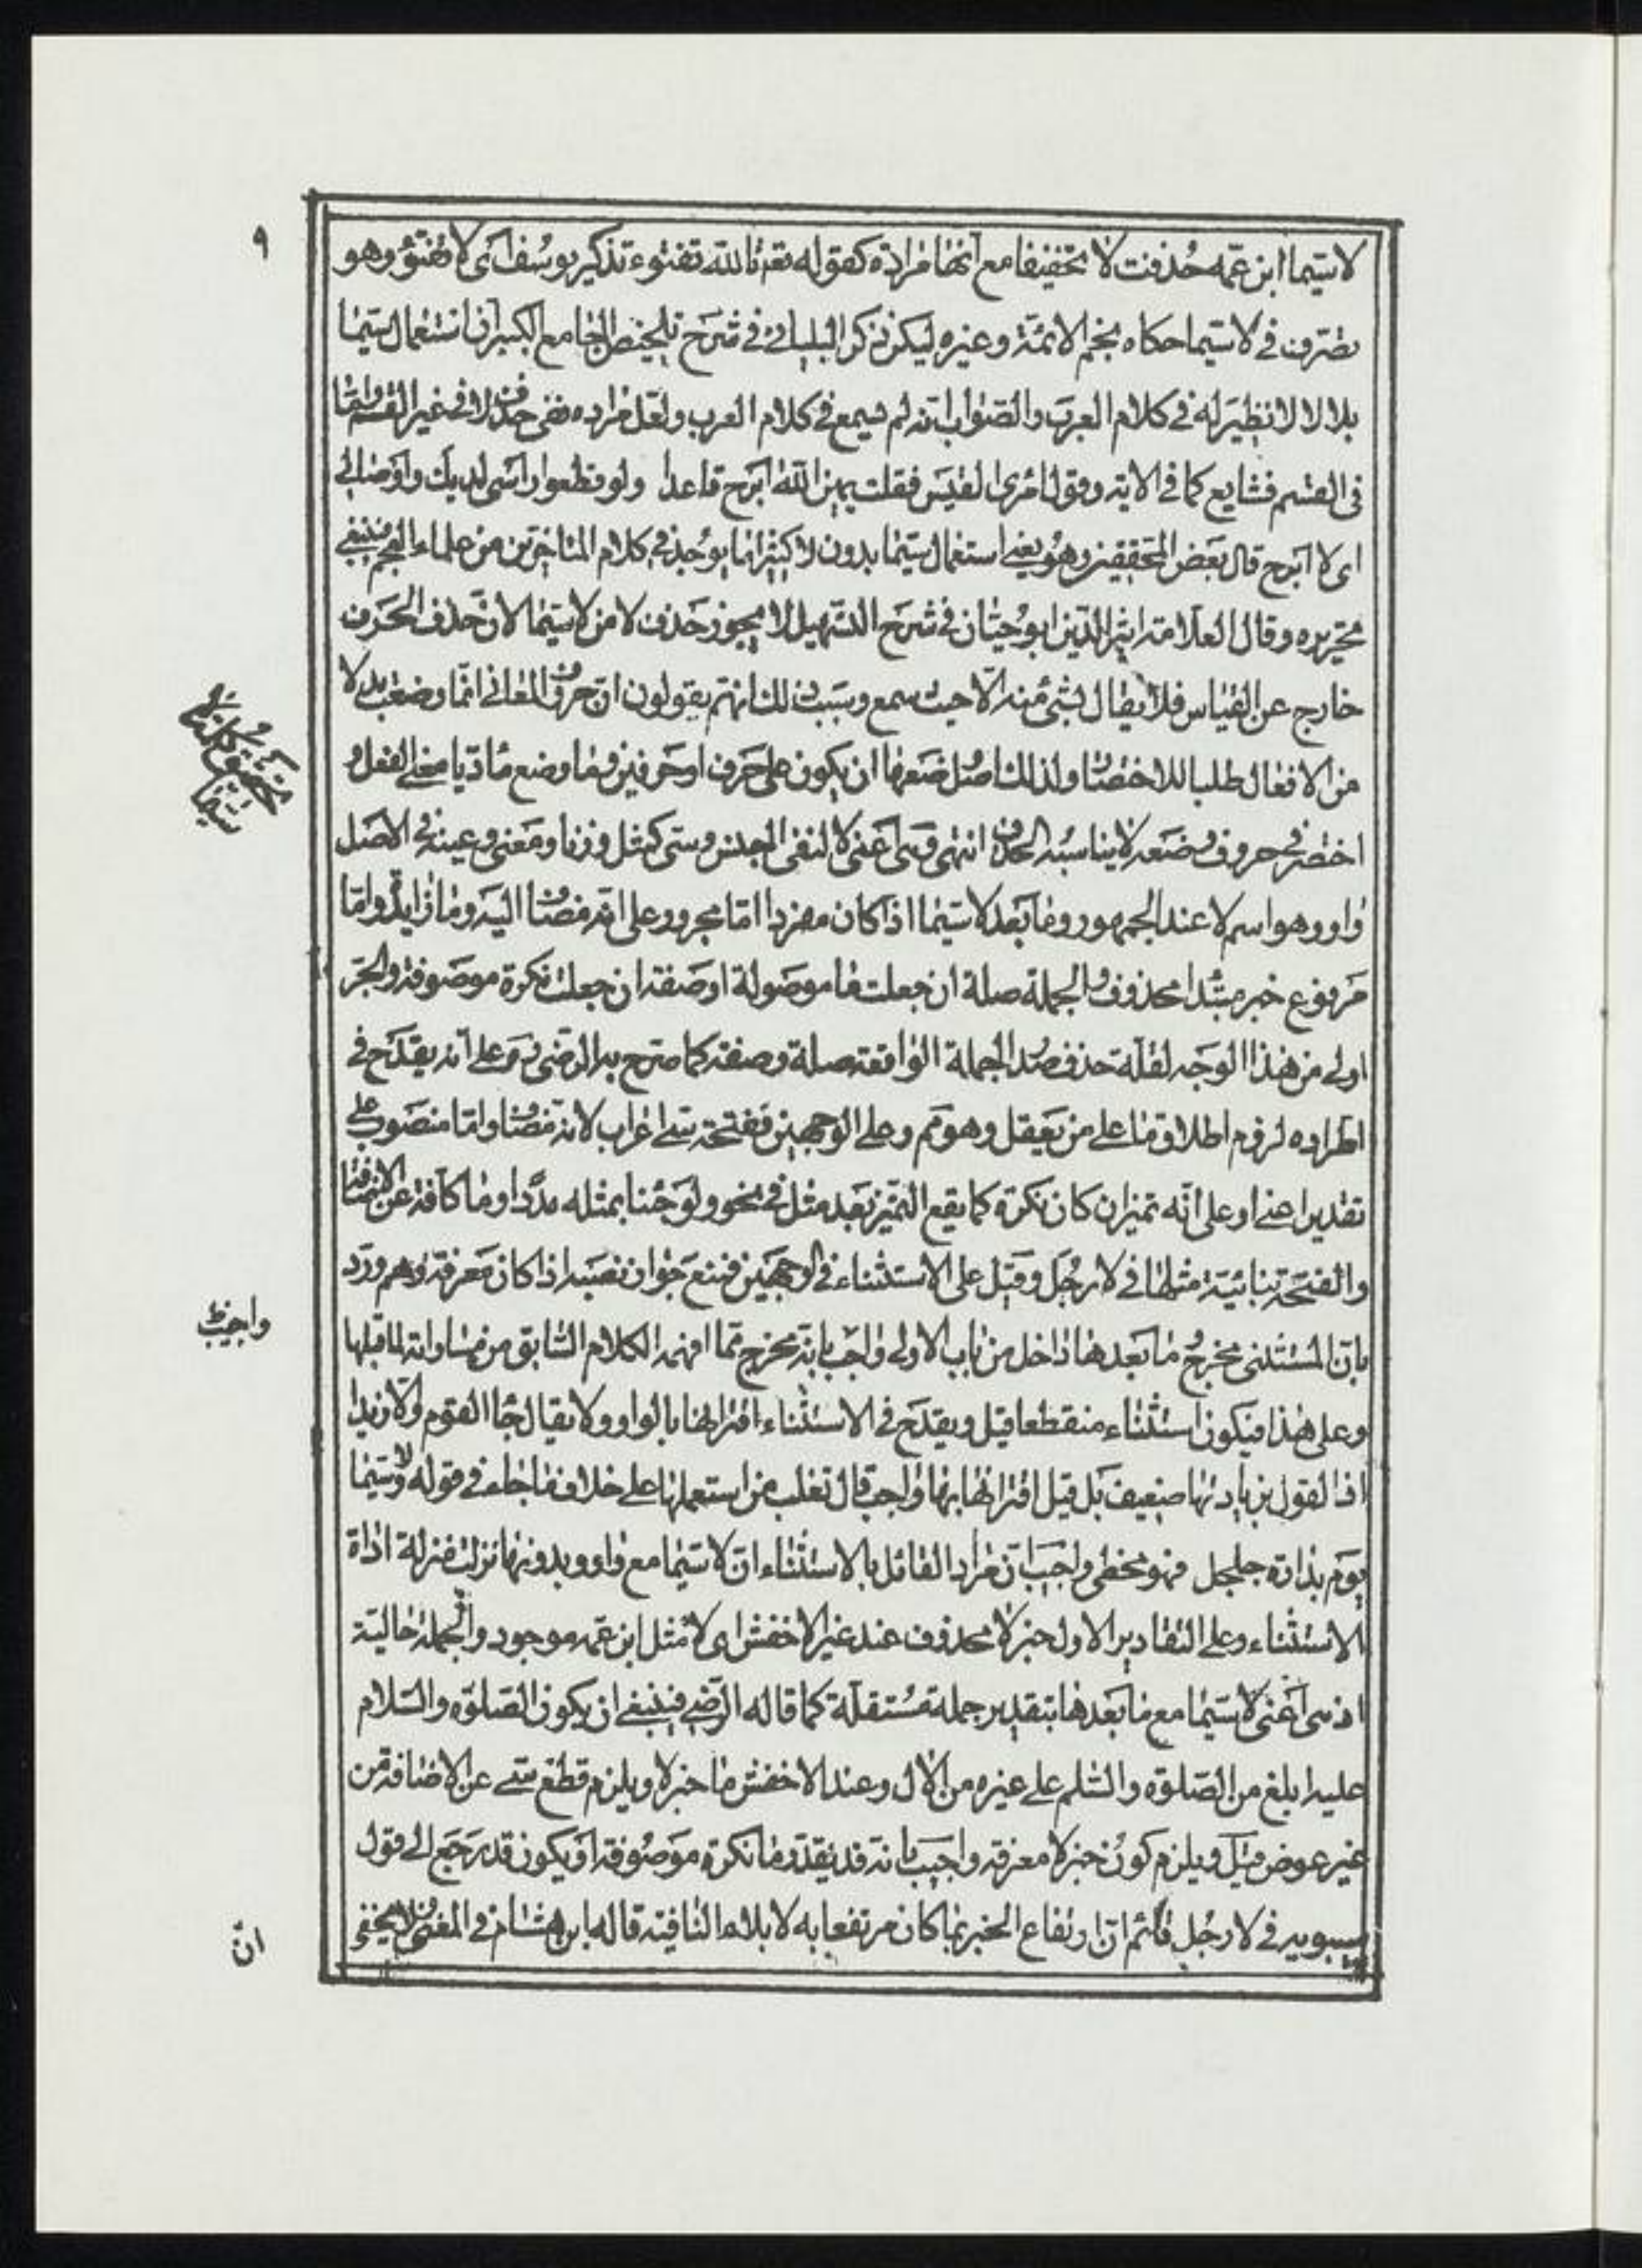 ٩
لاسيما ابن عمه حذفت لا تخفيفا مع انها مرادة كقوله تعم تالله تفتوء تذكر يوسف اى لا تفتؤ وهو
تصرف في لاسيما حكاه نجم الائمة وغيره ليكن ذكر البليانى في شرح تلخيص الجامع الكبير ان استعمال سيما
بلا لا لا نظير له في كلام العرب والصواب انه لم يسمع في كلام العرب ولعل مراده نفى حذف لا في غير القسم واما
فى القسم فشايع كما في الاية وقول امرئ القيس فقلت يمين الله ابرح قاعدا ولو قطعوا راسى لديك واوصالى
اى لا ابرح قال بعض المحققين وهو يعنى استعمال سيما بدون لا كثيرا ما يوجد في كلام المتاخرين من علماء العجم فينبغى
تحريره وقال العلامة اثير الدين ابو حيان في شرح التسهيل لا يجوز حذف لا من لاسيما لان حذف الحرف
خارج عن القياس فلا يقال بشئ منه الا حيث سمع وسبب ذلك انهم يقولون ان حروف المعانى انما وضعت بدلا
من الافعال طلبا للاختصا ولذلك اصل وضعها ان يكون على حرف او حرفين وما وضع مؤديا معنى الفعل و
اختصر في حروف وضعه لا يناسبه الحذف انتهى وسى اعنى لا لنفى الجنس وسى كمثل وزنا ومعنى وعينه في الاصل
واو وهو اسم لا عند الجمهور وما بعد لاسيما اذا كان مفردا اما مجرور على انه مضاف اليه وما زايدة واما
مرفوع خبر مبتدا محذوف والجملة صلة ان جعلت ما موصولة او صفة ان جعلت نكرة موصوفة والجر
اولى من هذا الوجه لقلة حذف صدر الجملة الواقعة صلة وصفة كما صرح به الرضى على انه يقدح في
اطراده لزوم اطلاق ما على من يعقل وهو م وعلى الوجهين ففتحة سى اعراب لانه مضاف واما منصوب على
تقدير اعنى او على انه تميز ان كان نكرة كما يقع التميز بعد مثل في نحو ولو جئنا بمثله مددا وما كافة عن الاضافة
والفتحة بنائية مثلها في لا رجل وقيل على الاستثناء في الوجهين فمنع جواز نصبه اذا كان معرفة وهم ورد
بان المستثنى مخرج ما بعدها داخل من باب الاولى واجب بانه مخرج مما افهمه الكلام السابق من مساواته لما قبلها
وعلى هذا فيكون استثناء منقطعا قيل ويقدح في الاستثناء اقترانها بالواو ولا يقال جا القوم والا زيدا
اذ القول بزيادتها ضعيف بل قيل اقترانها بها واجب قال ثعلب من استعملها على خلاف ما جاء في قوله ولاسيما
يوم بدارة جلجل فهو مخطى واجب ان مراد القائل بالاستثناء ان لاسيما مع واو وبدونها نزلت منزلة اداة
الاستثناء وعلى التقادير الاول خبر لا محذوف عند غير الاخفش اى لا مثل ابن عمه موجود والجملة حالية
اذ سى اعنى لاسيما مع ما بعدها بتقدير جملة مستقلة كما قاله الرضى فينبغى ان يكون الصلوة والسلام
عليه ابلغ من الصلوة والسلم على غيره من الال وعند الاخفش ما خبر لا ويلزم قطع سى عن الاضافة من
غير عوض قيل ويلزم كون خبر لا معرفة واجيب بانه قد يقدر ما نكرة موصوفة او يكون قد رجع الى قول
سيبويه في لا رجل قائم ان ارتفاع الخبر بما كان مرتفعا به لا بلاء النافية قاله ابن هشام في المغنى ولا يخفى
واجيب
ان